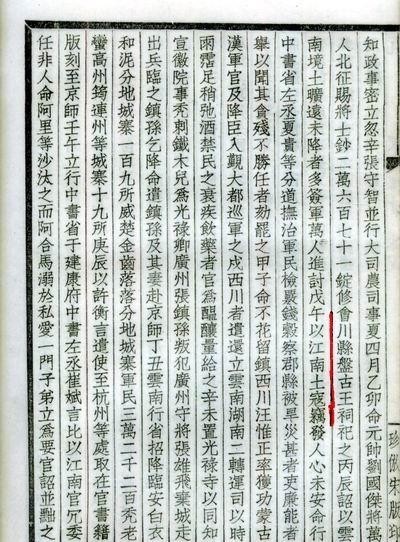 珍倣宋版印
知政事密立忽辛張守智並行大司農司事夏四月乙卯命元帥劉國傑將萬
人北征賜將士鈔二萬六百七十一綻修會川縣盤古王祠祀之丙辰詔以雲
南境土曠遠未降者多簽軍萬人進討戊午以江南土寇竊發人心未安命行
中書省左丞夏貴等分道撫治軍民檢覈錢穀察郡縣被旱災甚者吏廉能者
舉以聞其貪殘不勝任者劾罷之甲子命不花留鎮西川汪惟正率獲功蒙古
漢軍官及降臣入觀大都巡軍之戍西川者遣還立雲南湖南二轉運司以時
雨霑足稍弛酒禁民之衰疾飲藥者官爲醞釀量給之辛未置光祿寺以同知
宣徽院事禿剌鐵木兒爲光祿卿廣州張鎮孫叛犯廣州守將張雄飛棄城走
出兵臨之鎮孫乞降命遣鎮孫及其妻赴京師丁丑雲南行省招降臨安白衣
和泥分地城寨一百九所威楚金齒落落分地城寨軍民三萬二千二百禿老
蠻高州筠連州等城寨十九所庚辰以許衡言遣使至杭州等處取在官書籍
版刻至京師壬午立行中書省于建康府中書左丞崔斌言比以江南官冗委
任非人命阿里等沙汰之而阿合馬溺於私愛一門子弟並爲要官詔並黜之